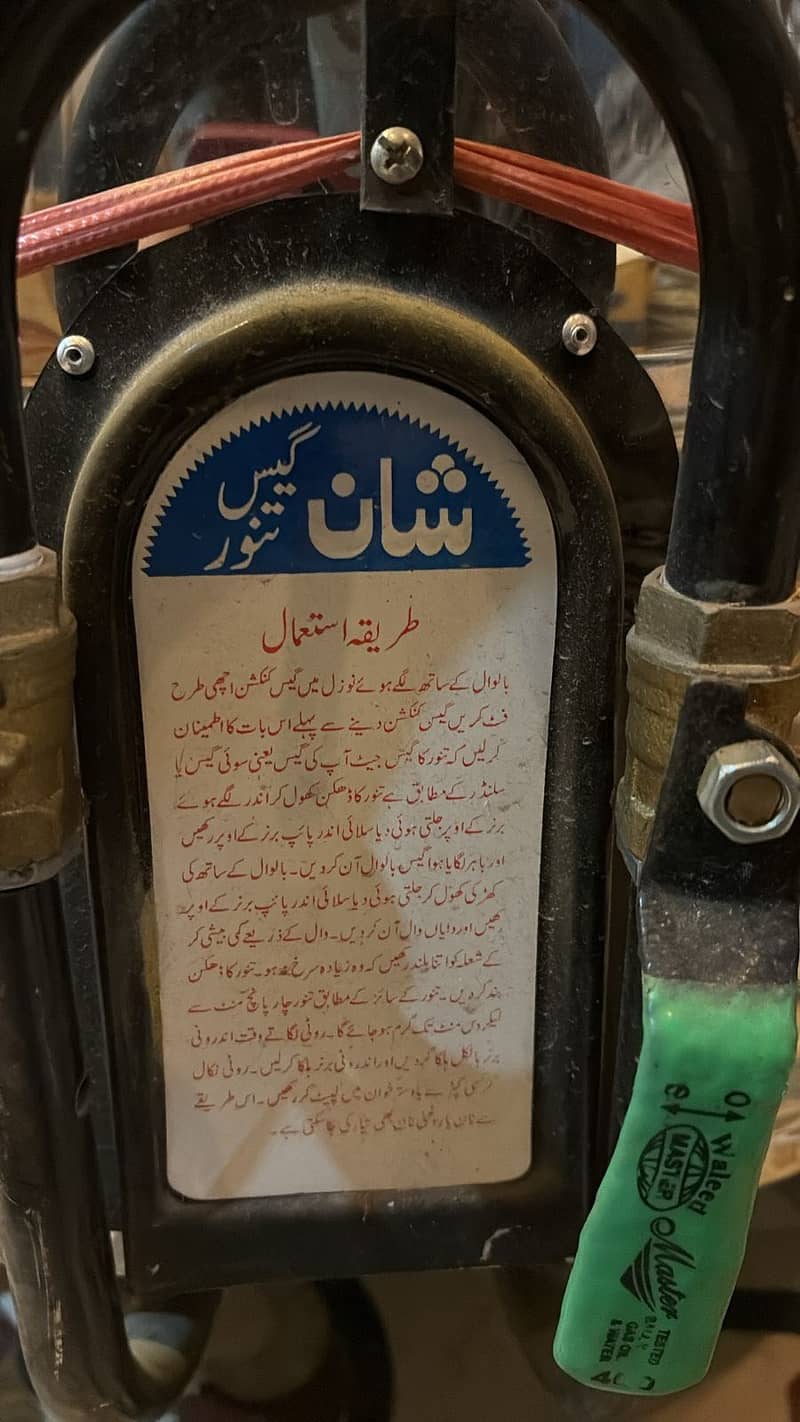 شان
گیس
تنور
طریقہ استعمال
بالوال کے ساتھ لگے ہوئے نوزل میں گیس کنکشن اچھی طرح
فٹ کریں گیس کنکشن دینے سے پہلے اس بات کا اطمینان
کر لیں کہ تنور کا گیس جیٹ آپ کی گیس یعنی سوئی گیس یا
سلنڈر کے مطابق ہے تنور کا ڈھکن کھول کر اندر لگے ہوئے
برنر کے اوپر جلتی ہوئی دیا سلائی اندر پائپ برنر کے اوپر رکھیں
اور باہر لگایا ہوا گیس بالوال آن کر دیں۔ بالوال کے ساتھ کی
کھڑکی کھول کر جلتی ہوئی دیا سلائی اندر پائپ برنر کے اوپر
رکھیں اور دایاں وال آن کر دیں۔ وال کے ذریعے کمی بیشی کر
کے شعلہ کو اتنا بلند رکھیں کہ وہ زیادہ سرخ نہ ہو۔ تنور کا ڈھکن
بند کر دیں۔ تنور کے سائز کے مطابق تنور چار پانچ منٹ سے
لیکر دس منٹ تک گرم ہو جائے گا۔ روٹی لگاتے وقت اندرونی
برنر بالکل ہلکا کر دیں اور اندرونی برنر ہلکا کر لیں۔ روٹی نکال
کر کسی کپڑے یا دستر خوان میں لپیٹ کر رکھیں۔ اس طریقے
سے نان یا روغنی نان بھی تیار کی جا سکتی ہے۔
Waleed
MASTER
Master
TESTED
GAS OIL
& WATER